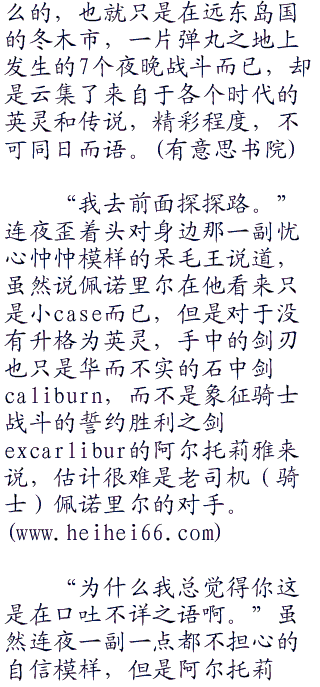 么的，也就只是在远东岛国
的冬木市，一片弹丸之地上
发生的7个夜晚战斗而已，却
是云集了来自于各个时代的
英灵和传说，精彩程度，不
可同日而语。(有意思书院)
“我去前面探探路。”
连夜歪着头对身边那一副忧
心忡忡模样的呆毛王说道，
虽然说佩诺里尔在他看来只
是小case而已，但是对于没
有升格为英灵，手中的剑刃
也只是华而不实的石中剑
caliburn，而不是象征骑士
战斗的誓约胜利之剑
excarlibur的阿尔托莉雅来
说，估计很难是老司机（骑
士）佩诺里尔的对手。
(www.heihei66.com)
“为什么我总觉得你这
是在口吐不详之语啊。”虽
然连夜一副一点都不担心的
自信模样，但是阿尔托莉